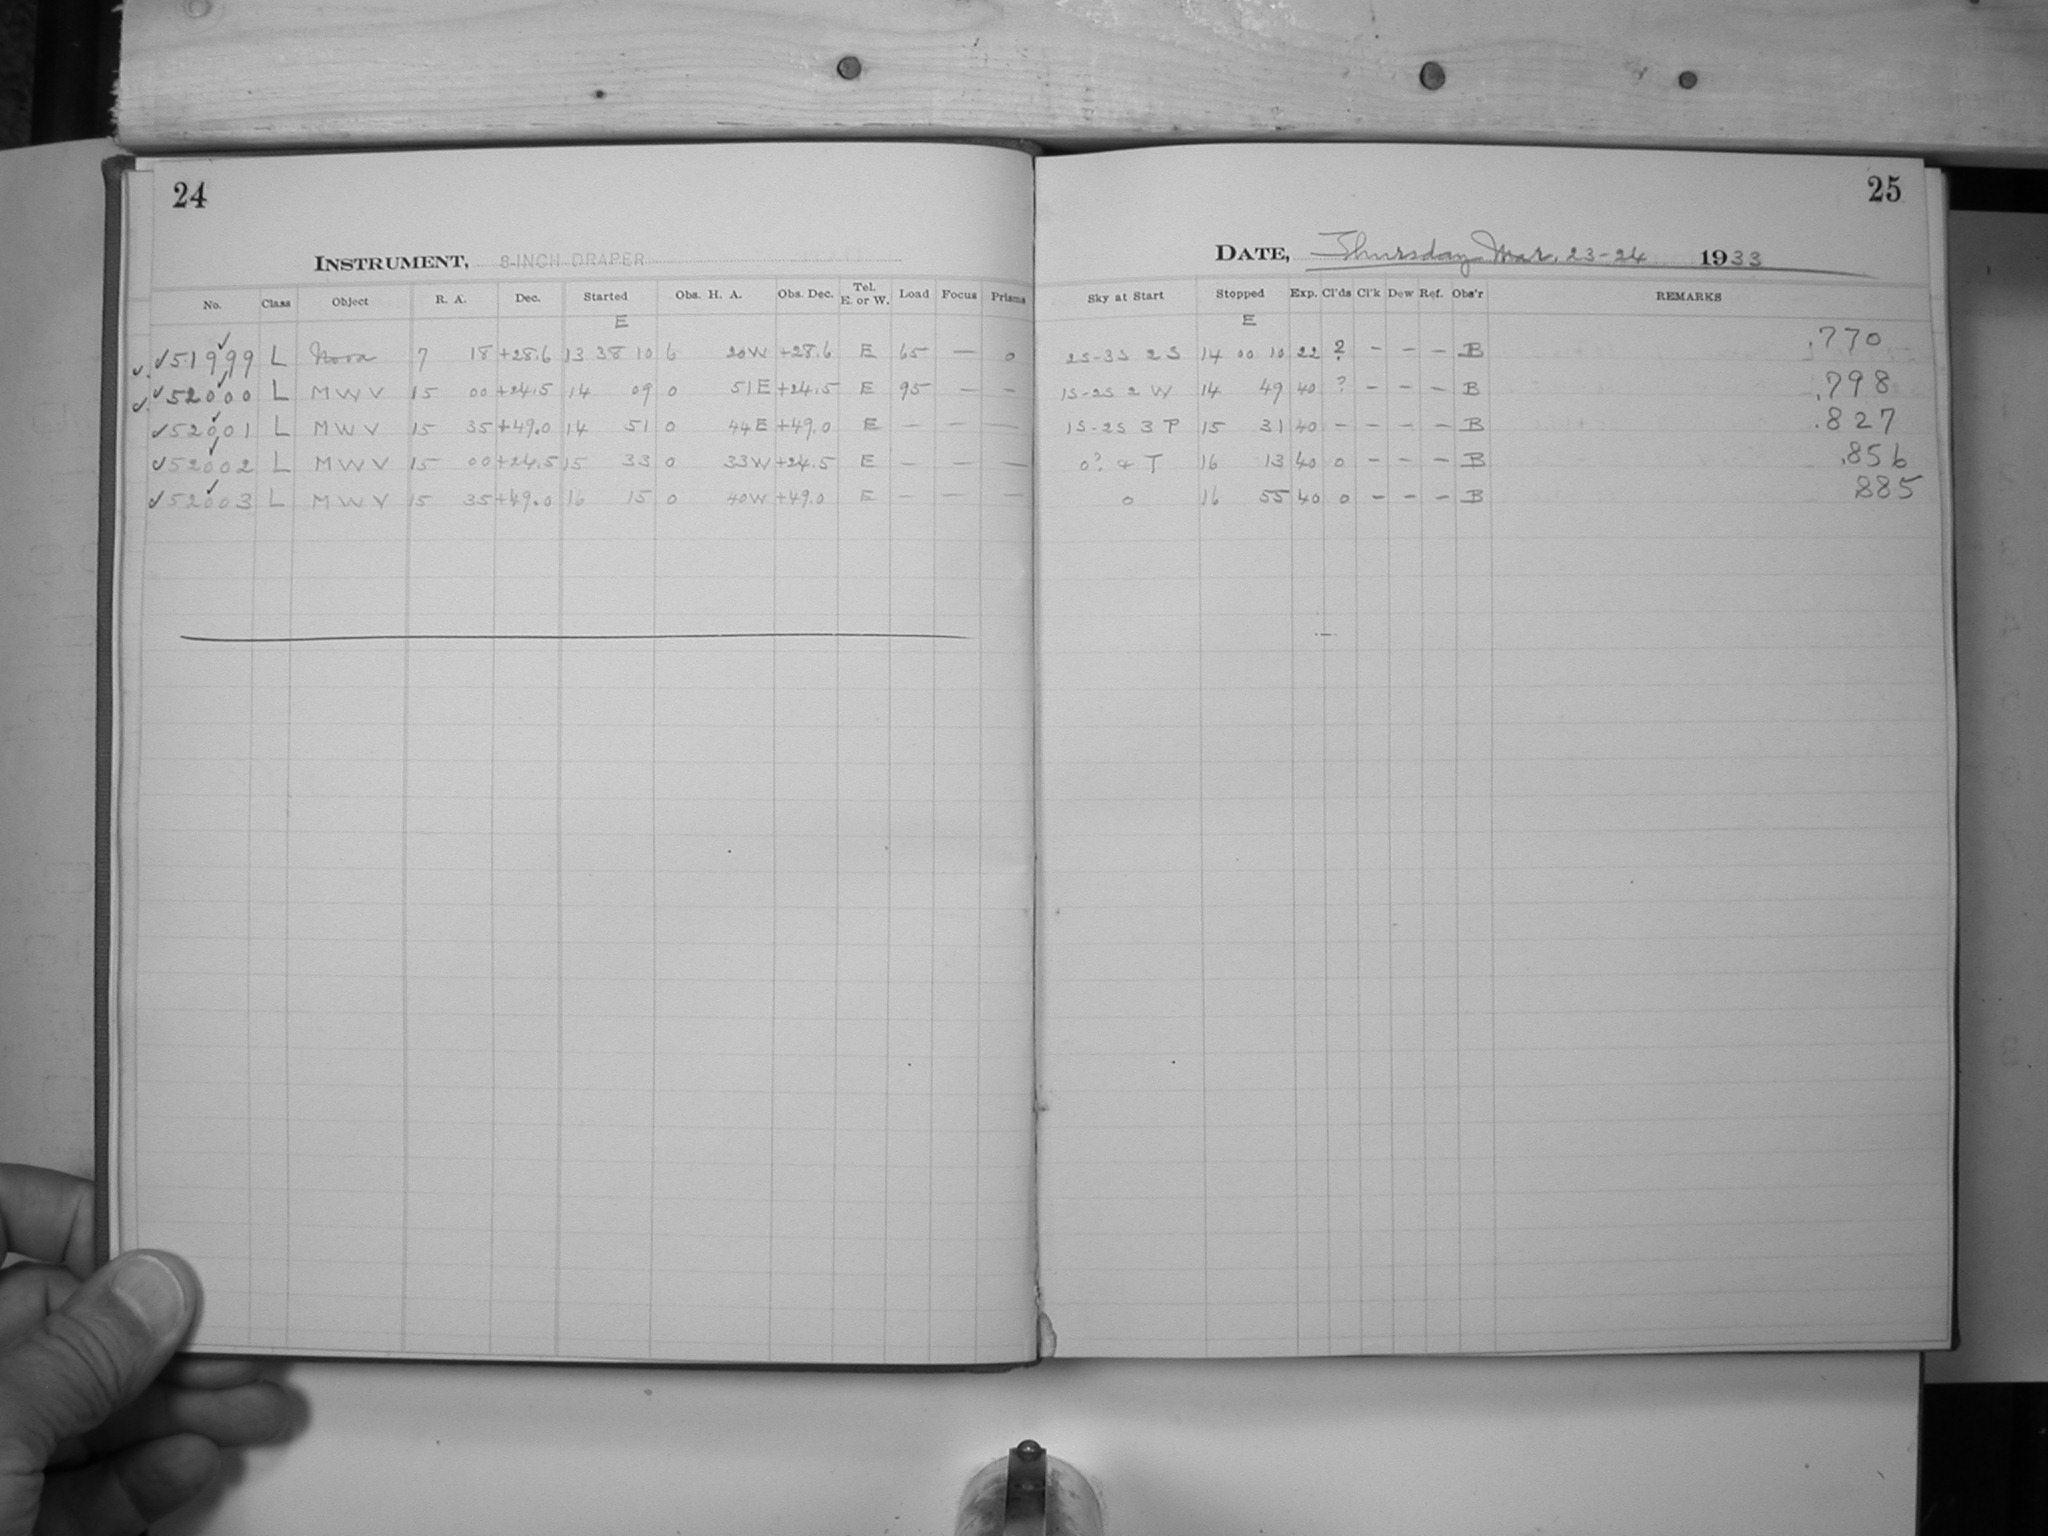 24
INSTRUMENT, 8-INCH DRAPER
No. Class Object R. A. Dec. Started Obs. H. A. Obs. Dec. Tel. E. or W. Load Focus Prisms
E
✓ ✓51999 L Nova 7 18 +28.6 13 38 10 6 20W +28.6 E 65 — 0
✓ ✓52000 L MWV 15 00 +24.5 14 09 0 51E +24.5 E 95 — —
✓52001 L MWV 15 35 +49.0 14 51 0 44E +49.0 E — — —
✓52002 L MWV 15 00 +24.5 15 33 0 33W +24.5 E — — —
✓52003 L MWV 15 35 +49.0 16 15 0 40W +49.0 E — — —
25
DATE, Thursday Mar. 23-24 1933
Sky at Start Stopped Exp. Cl'ds Cl'k Dew Ref. Obs'r REMARKS
E
2S-3S 2S 14 00 10 22 ? — — — B .770
1S-2S 2 W 14 49 40 ? — — — B .798
1S-2S 3 P 15 31 40 — — — — B .827
0? & T 16 13 40 0 — — — B .856
0 16 55 40 0 — — — B .885